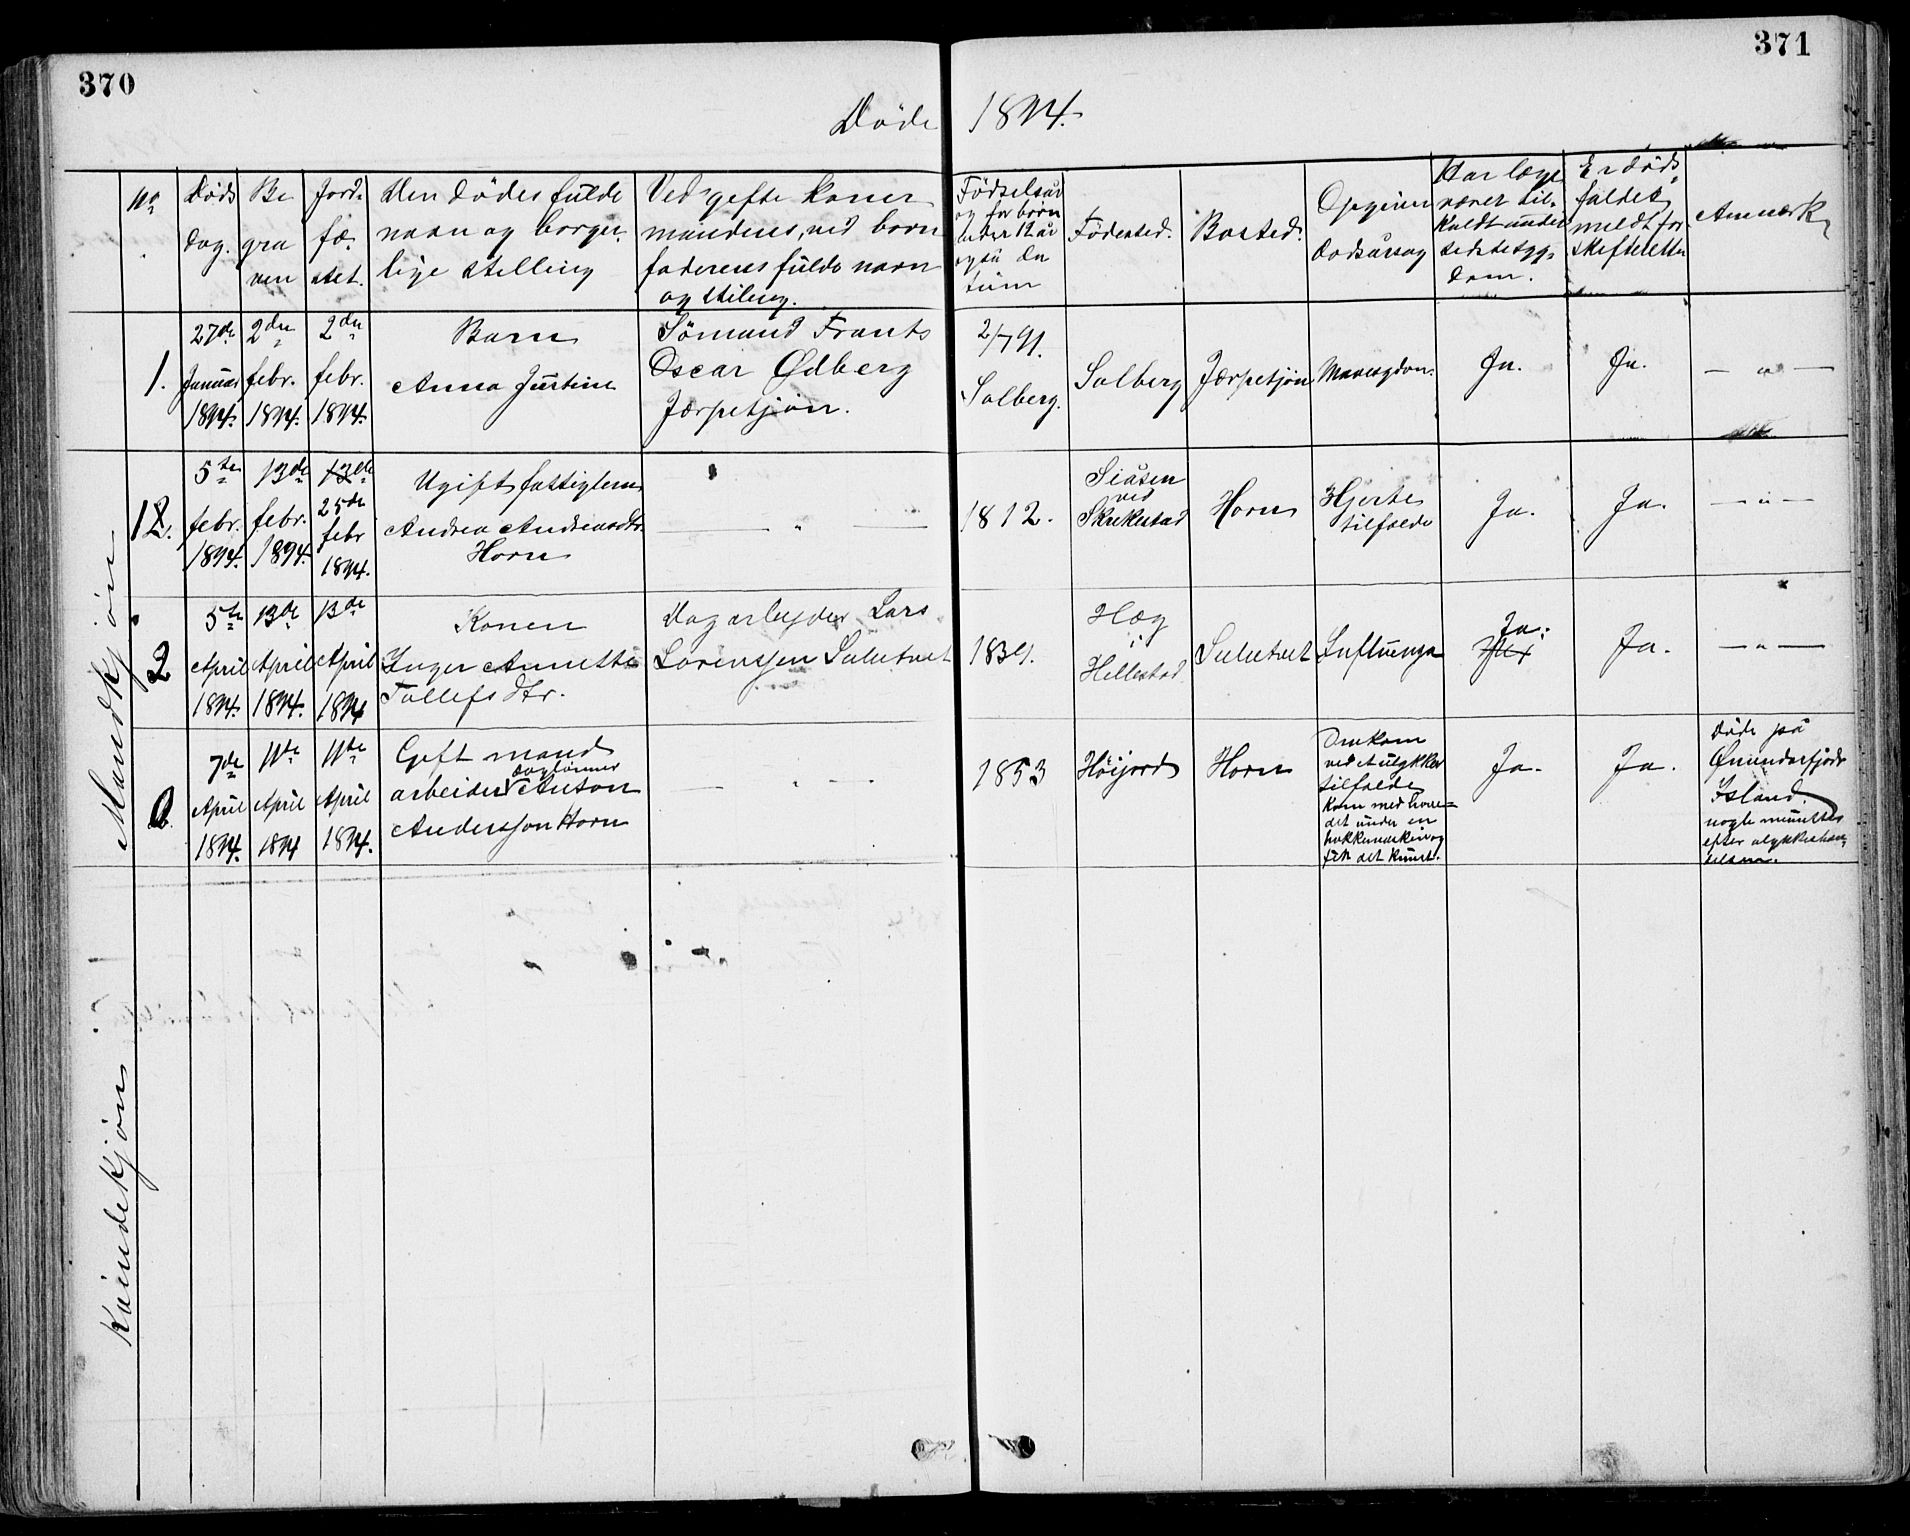 370
371
Døde 1894.
No
Døds dag.
Be gra ven
Jord. fæ. stet.
Den dødes fulde navn og borger. lige stilling
Ved gifte koner mandens, ved børn faderens fulde navn og stiling.
Fødselsår og for børn under 12 år også da tum
Fødested.
Bosted.
Opgiven dødsårsag
Har læge været til. kaldt under sidste syg. dom.
Er døds. faldet meldt for skifteretten
Anmærk
Mandkjøn
Kvindekjøn
1.
27de Januar 1894.
2den febr. 1894.
2den febr. 1894.
Barn Anna Justine
Sømand Frants Oscar Ødberg Jærpetjøn.
2/7 91. Solberg.
Solberg
Jærpetjøn
Mavesygdom.
Ja.
Ja.
— „ —
12.
5te febr. 1894.
13de febr. 1894.
13de 25de febr 1894.
Ugift fattiglem Andrea Andreasdtr. Horn
— „ —
1812.
Siåsen ved Skrekestad
Horn
Hjerte tilfælde
Ja.
Ja.
— „ —
2
5te April 1894.
13de April 1894.
13de April 1894
Konen Inger Annette Tollefsdtr.
Dagarbejder Lars Lorensjen
1839.
Hæg i Hillestad
Influensa
Ja.
Ja.
— „ —
7de April 1894.
11te April 1894
11te April 1894.
Gift mand arbeider daglønner Anton Anderssjon Horn
— „ —
1853
Høijord
Horn
Omkom ved et ulykkes tilfælde kom med hove= det under en hakkemaskin og fik det knust.
Ja.
Ja.
Døde på Ønundarfjødr Island. nogle minutter efter ulykkeshæn. delsen.